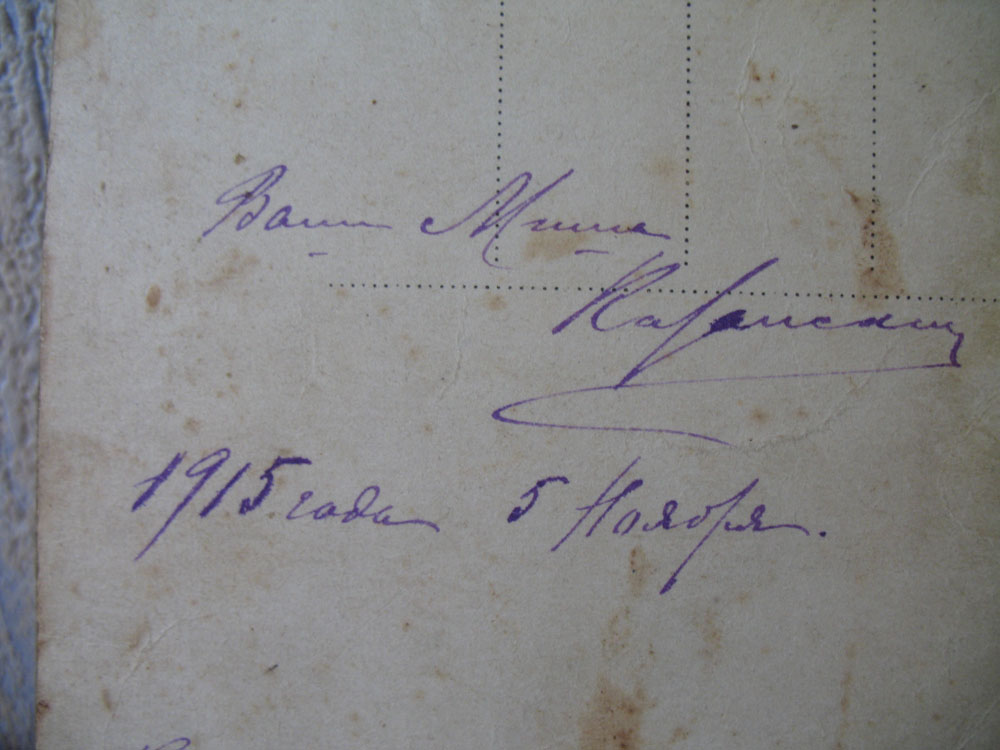 Ваш Миша
Казанский
1915 года 5 Ноября.